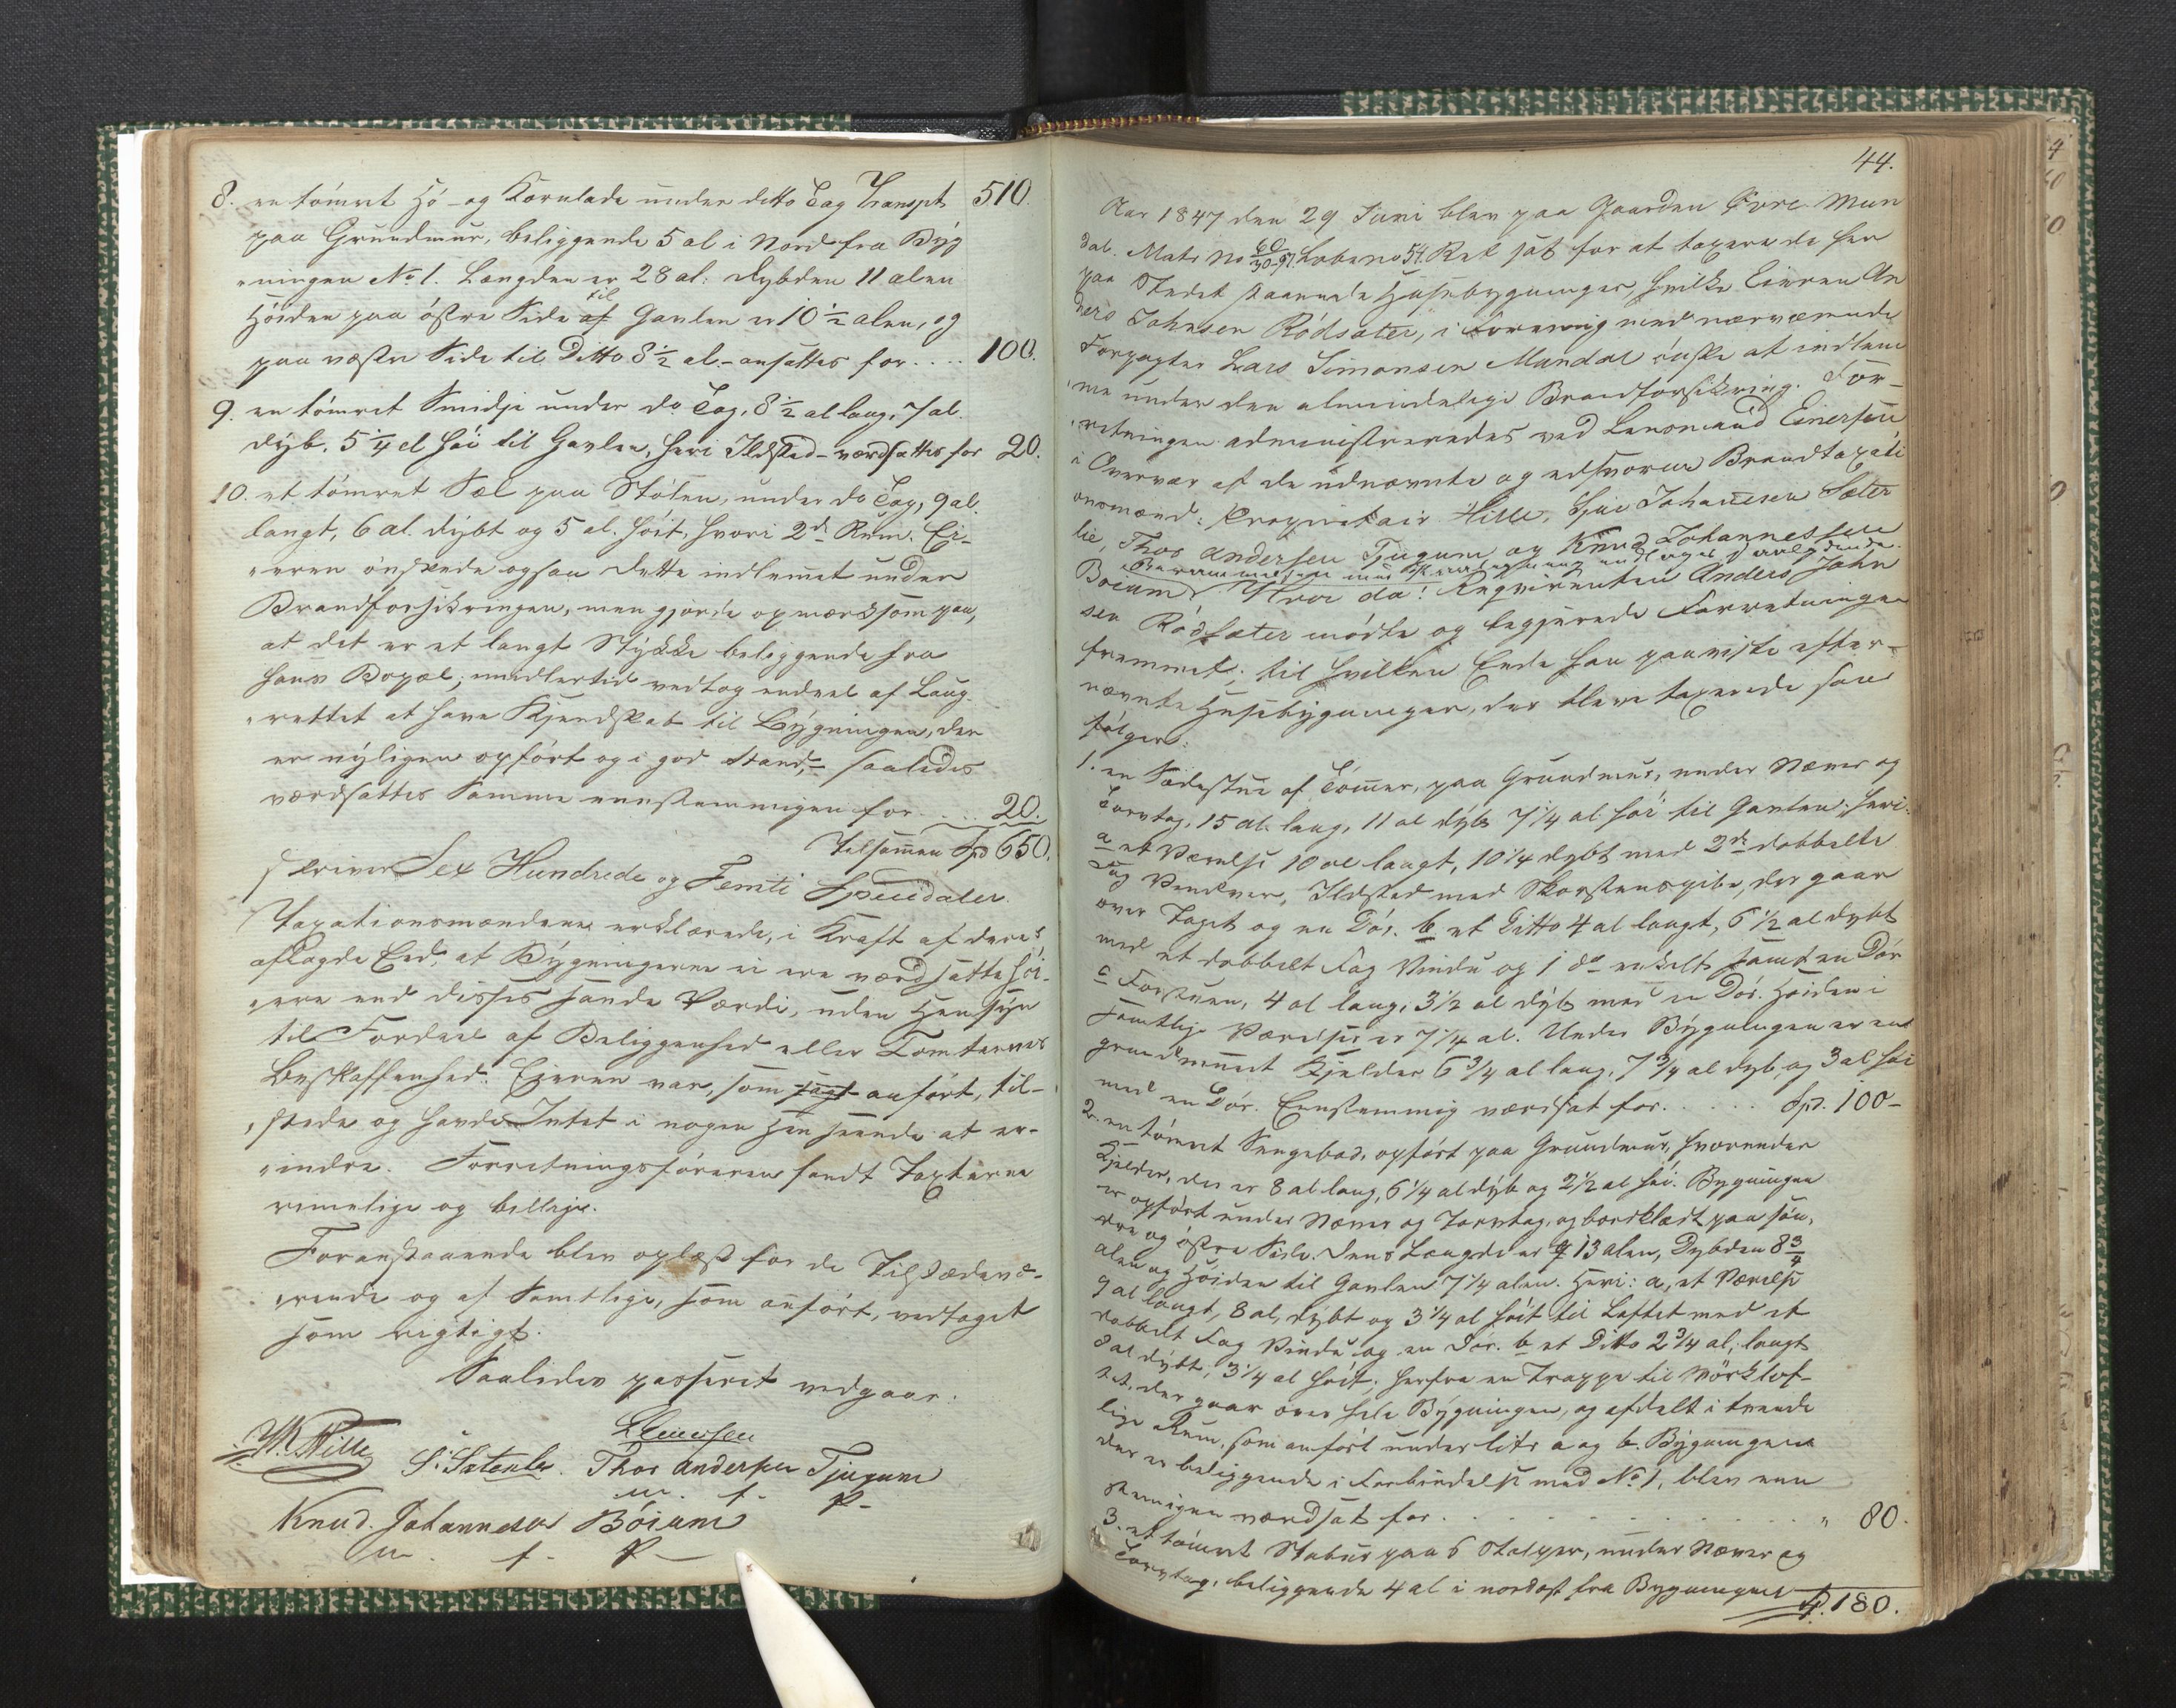 8. en tömret Hö- og Kornlade under ditto Tag Transpt. 510.
paa Grundmuur, beliggende 5 al i Nord fra Byg
ningen No 1. Længden er 28 al: Dybden 11 alen
Höiden paa östre Side til Gavlen er 10 1/2 alen, og
paa væstre Side til Ditto 8 1/2 al - ansattes for .... 100.
9. en tömret Smidje under do Tag, 8 1/2 al lang, 7 al.
dyb, 5 1/4 al höi til Gavlen, heri Ildsted - værdsattes for 20.
10. et tömret Sæl paa Stölen, under do Tag, 9 al.
langt, 6 al. dybt og 5 al. höit, hvori 2de Rum. Ei-
eren önskede ogsaa dette indlemmet under
Brandforsikringen, men gjorde opmærksom paa,
at det er et langt Stykke beliggende fra
hans Bopæl; imidlertid vedtog endeel af Laug-
rettet at have Kjendskab til Bygningen, der
er nyligen opfört og i god Stand, saaledes
værdsattes Samme eenstemmigen for .... 20.
Tilsammen Spd 650.
skriver Sex Hundrede og Femti Speciedaler.
Taxationsmændene erklærede, i Kraft af deres
aflagde Eed, at Bygningerne ei ere værdsatte höi-
ere end disses sande Værdi, uden Hensyn
til Fordeel af Beliggenhed eller Tomternes
Beskaffenhed. Ejeren var, som sagt anfört, til-
stede og havde Intet i nogen Henseende at er-
indre. Forretningsföreren fandt Taxterne
rimelige og billige.
Foranstaaende blev oplæst for de Tilstedevæ-
rende og af Samtlige, som anfört, vedtaget
som rigtigt.
Saaledes passeret vedgaar.
Einersen
Hille S. Sæterlie. Thor Andersen Tjugum
m. f. P-
Knud. Johannesen Böium
m. f. P-
44.
Aar 1847 den 29 Juni blev paa Gaarden Övre Mun
dal. Matr No 60/30-91. Lobeno 54. Ret sat for at taxere de her
paa Stedet staaende Huusebygninger, hvilke Eieren An
ders Johnsen Rödsæter, i Forening med nærværende
Forpagter Lars Simonsen Mundal önske at indlem
me under den almindelige Brandforsikring. For-
retningen administreredes ved Lensmand Einersen
i Overvær af de udnævnte og edsvorne Brandtaxati
onsmænd: Proprietair Hille, Sjur Johannesen Sæter
lie, Thor Andersen Tjugum og Knud Johannessen
Böium. Hvor da! Reqvirenten Anders John
sen Rödsæter mödte og begjærede Forretningen
fremmet; til hvilken Ende han paaviste efter-
nævnte Huusebygninger, der bleve taxerede som
fölger:
1. en Sædestue af Tömmer, paa Grundmuur, under Næver og
Torvtag, 15 al. lang, 11 al dyb 7 1/4 al höi til Gavlen; heri:
a et Værelse 10 al langt, 10 1/4 dybt med 2de dobbelte
Fag Vinduer, Ildsted med Skorstenspibe, der gaar
over Taget og en Dör. b et Ditto 4 al langt, 6 1/2 al dybt
med et dobbelt Fag Vindu og 1 do enkelt samt en Dör
c Forstuen, 4 al lang, 3 1/2 al dyb med en Dör. Höiden i
samtlige Værelser er 7 1/4 al. Under Bygningen er en
grundmuret Kjelder 6 3/4 al lang, 7 3/4 al dyb, og 3 al höi
med en Dör. Eenstemmig værdsat for. .... Spd. 100-
2. en tömret Sengebod, opfört paa Grundmuur, hvorunder
Kjelder, der er 8 al lang, 6 1/4 al dyb og 2 1/2 al höi. Bygningen
er opfört under Næver og Torvtag, og bordklædt paa sön-
dre og östre Side. Dens Længde er 13 alen, Dybden 8 3/4
alen og Höiden til Gavlen 7 1/4 alen. Heri: a, et Værelse
9 al langt, 8 al, dybt og 3 1/4 al höit til Loftet med et
dobbelt Fag Vindu og en Dör. b et Ditto 2 3/4 al, langt
8 al dybt, 3 1/4 al höit; herfra en Trappe til Mörkloft-
tet, der gaar over hele Bygningen, og afdelt i tvende
lige Rum, som anfört under litr a og b. Bygningen
der er beliggende i Forbindelse med No 1, blev een
stemigen værdsat for. . . . . . " 80.
3. et tömret Stabur paa 6 Stolper, under Næver og
Torvtag, beliggende 4 al i nordost fra Bygningen
Sp. 180.